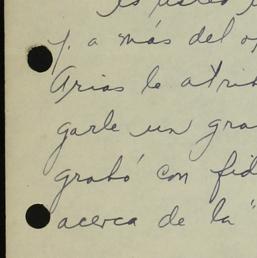 es usted
y a más del o
Arias le atrib
garle un gra
grabó con fid
acerca de la "